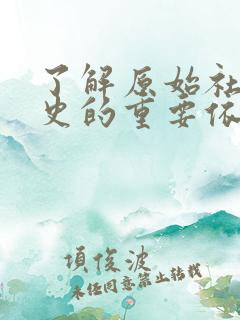 了解原始社
史的重要依
项俊波
未经同意禁止转载